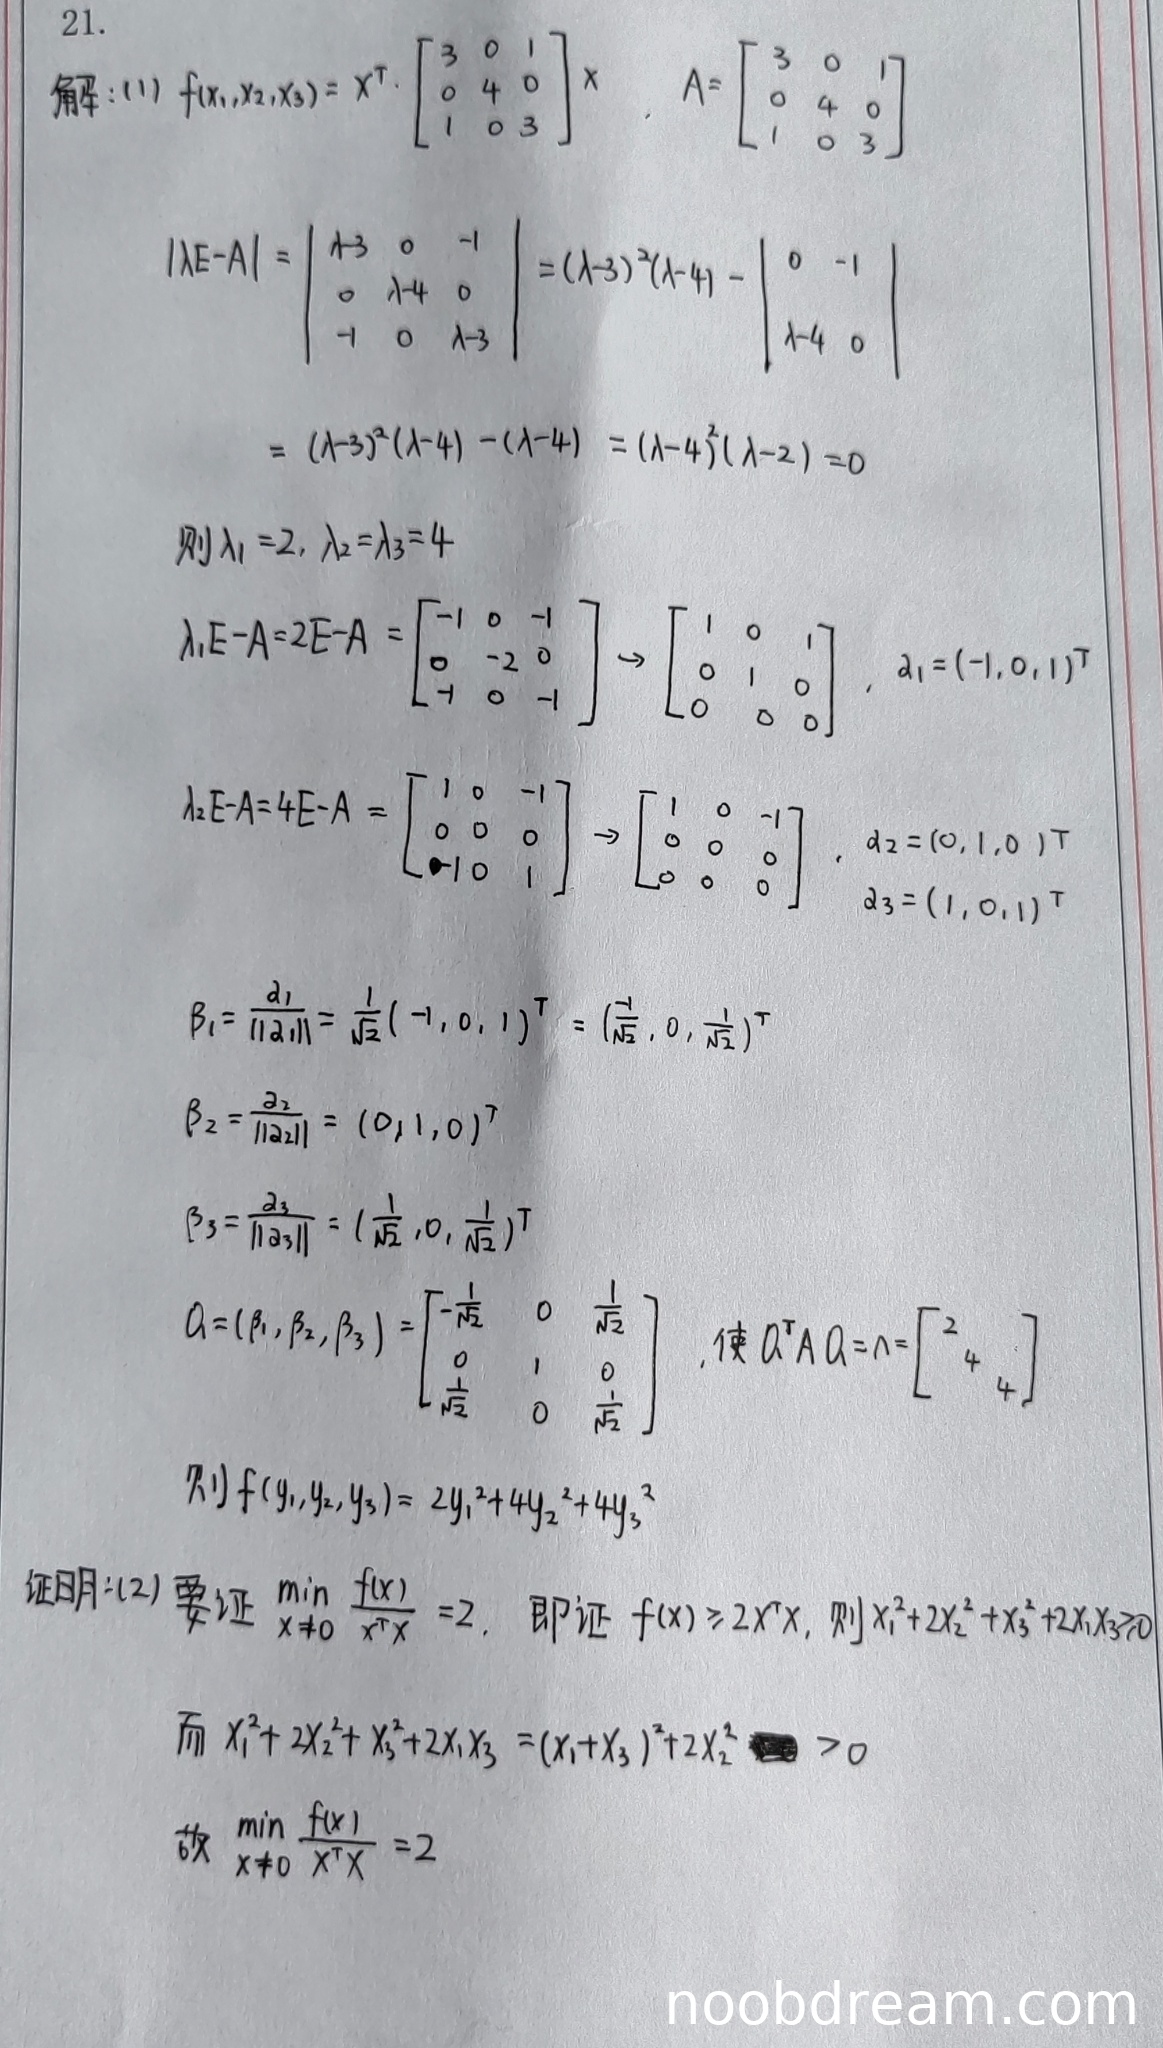 21.
解:(1) f(x₁,x₂,x₃) = xᵀ· [3 0 1; 0 4 0; 1 0 3] x , A= [3 0 1; 0 4 0; 1 0 3]
|λE-A| = |λ-3 0 -1; 0 λ-4 0; -1 0 λ-3| =(λ-3)²(λ-4) - |0 -1; λ-4 0|
= (λ-3)²(λ-4) -(λ-4) =(λ-4)²(λ-2) =0
则λ₁=2, λ₂=λ₃=4
λ₁E-A=2E-A = [-1 0 -1; 0 -2 0; -1 0 -1] → [1 0 1; 0 1 0; 0 0 0] , α₁=(-1,0,1)ᵀ
λ₂E-A=4E-A = [1 0 -1; 0 0 0; -1 0 1] → [1 0 -1; 0 0 0; 0 0 0] , α₂=(0,1,0)ᵀ
α₃=(1,0,1)ᵀ
β₁= α₁/||α₁|| = 1/√2 (-1,0,1)ᵀ = (-1/√2, 0, 1/√2)ᵀ
β₂= α₂/||α₂|| = (0,1,0)ᵀ
β₃= α₃/||α₃|| = (1/√2, 0, 1/√2)ᵀ
Q=(β₁,β₂,β₃) = [-1/√2 0 1/√2; 0 1 0; 1/√2 0 1/√2] ,使QᵀAQ=Λ= [2 4 4]
则f(y₁,y₂,y₃)= 2y₁²+4y₂²+4y₃²
证明:(2) 要证 min x≠0 f(x)/xᵀx =2, 即证 f(x)≥2xᵀx, 则x₁²+2x₂²+x₃²+2x₁x₃≥0
而 x₁²+2x₂²+x₃²+2x₁x₃ =(x₁+x₃)²+2x₂² >0
故 min x≠0 f(x)/xᵀx =2
noobdream.com